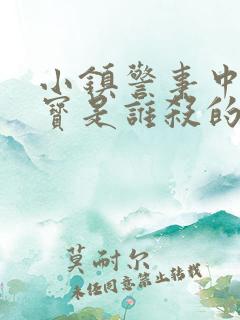 小鎮警事中
寶是誰殺的
莫耐尔
未经同意禁止转载